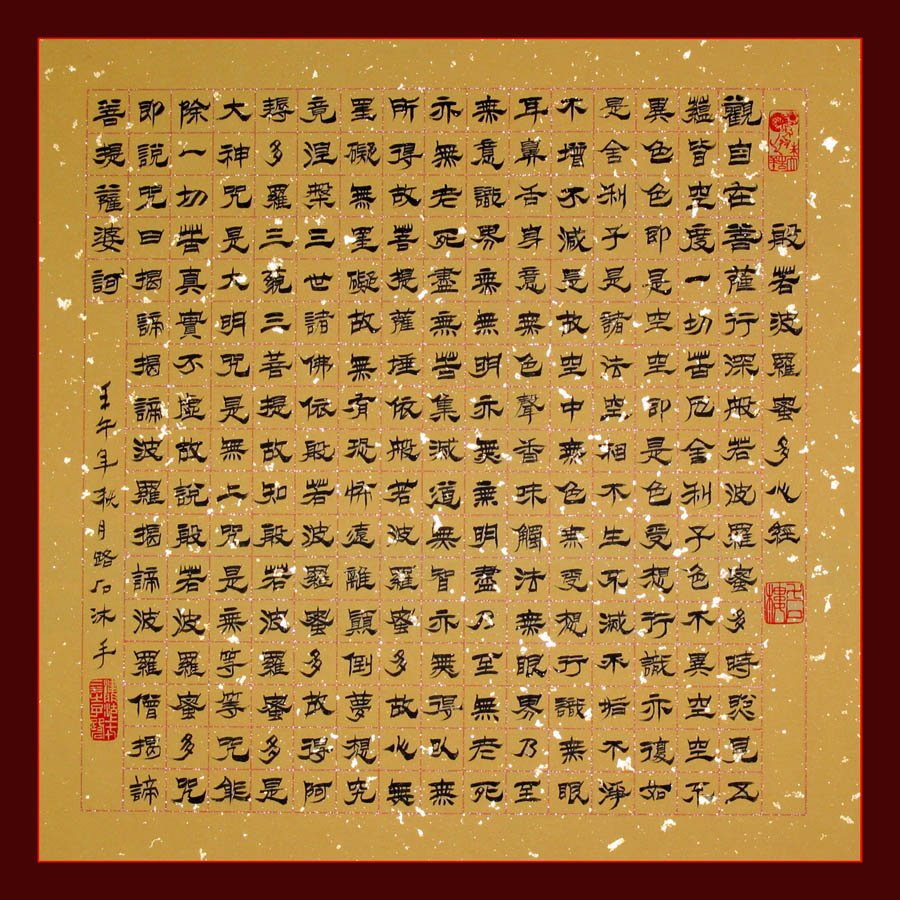 般若波羅蜜多心經
觀自在菩薩行深般若波羅蜜多時照見五
蘊皆空度一切苦厄舍利子色不異空空不
異色色即是空空即是色受想行識亦復如
是舍利子是諸法空相不生不滅不垢不淨
不增不減是故空中無色無受想行識無眼
耳鼻舌身意無色聲香味觸法無眼界乃至
無意識界無無明亦無無明盡乃至無老死
亦無老死盡無苦集滅道無智亦無得以無
所得故菩提薩埵依般若波羅蜜多故心無
罣礙無罣礙故無有恐怖遠離顛倒夢想究
竟涅槃三世諸佛依般若波羅蜜多故得阿
耨多羅三藐三菩提故知般若波羅蜜多是
大神咒是大明咒是無上咒是無等等咒能
除一切苦真實不虛故說般若波羅蜜多咒
即說咒曰揭諦揭諦波羅揭諦波羅僧揭諦
菩提薩婆訶
壬午年秋月路石沐手